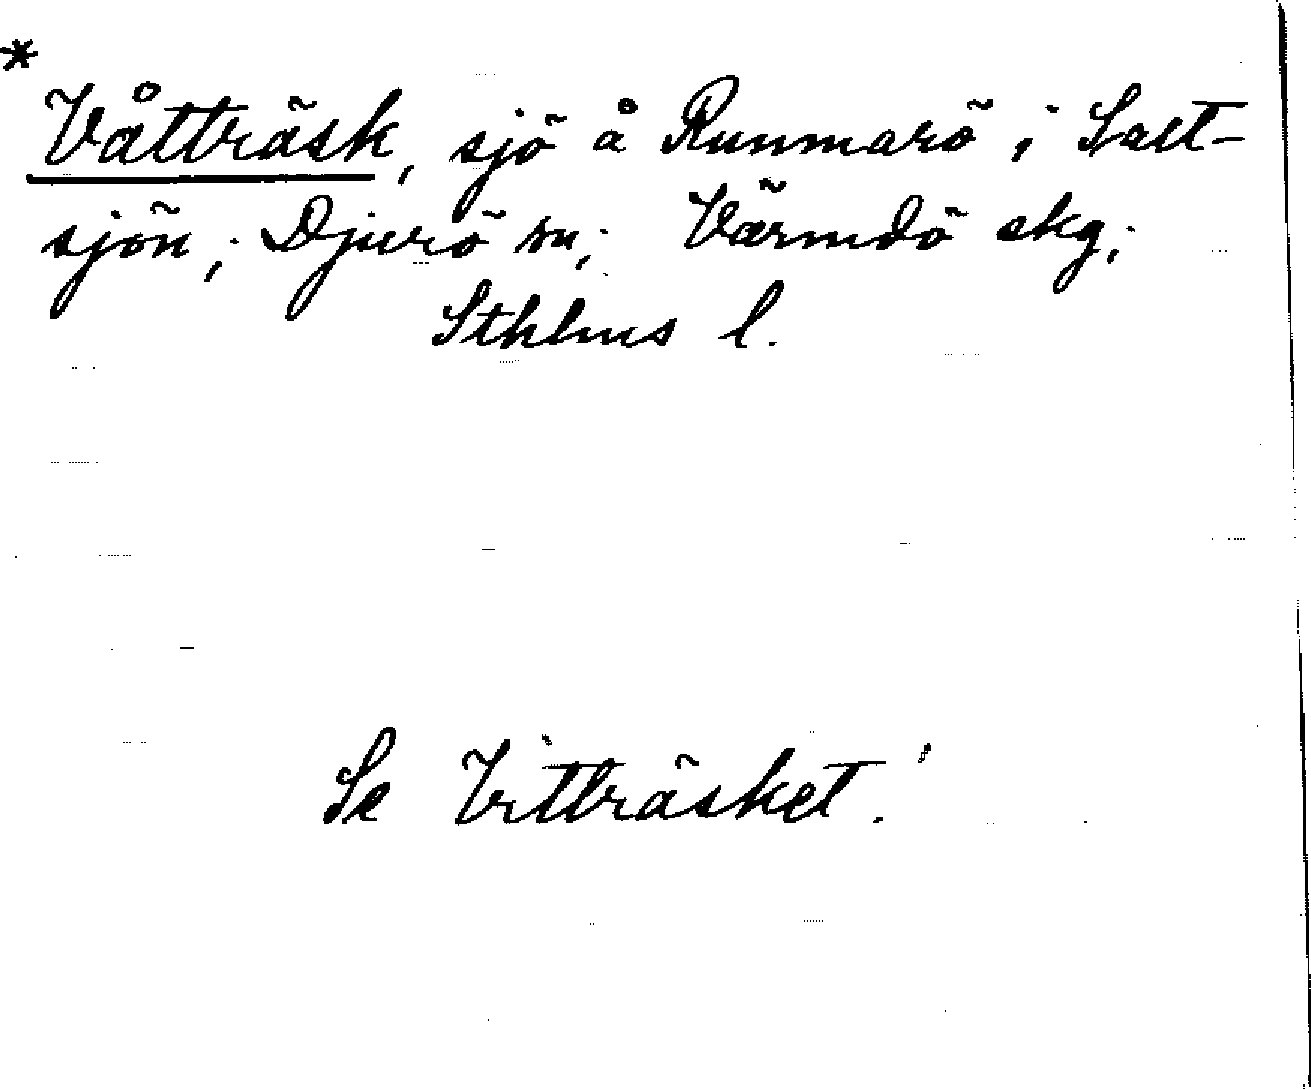 *
Våtträsk, sjö å Runmarö i Salt-
sjön; Djurö sn; Värmdö skg;
Sthlms l.
Se Vitträsket.